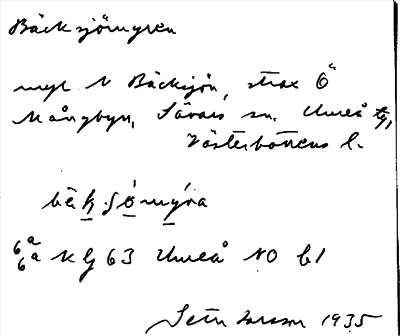 Bäcksjömyren
myr N Bäcksjön, strax Ö
Mångbyn, Sävars sn. Umeå tg,
Västerbottens l.
bäk ʃö̀mýra
6a 6a K bl 63 Umeå NO b1
Seth Larsson 1935